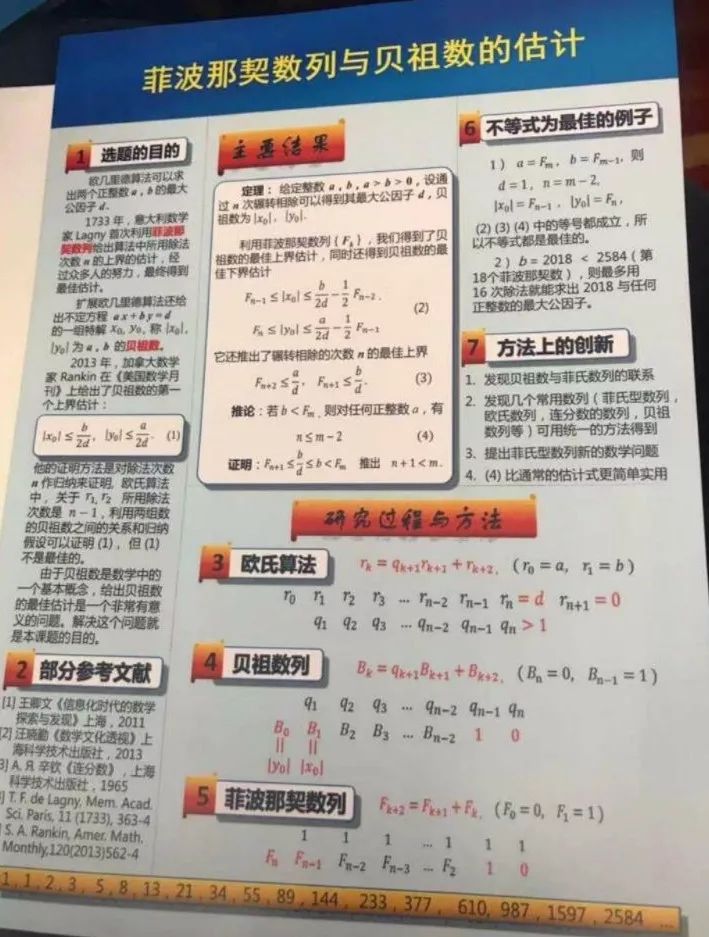 菲波那契数列与贝祖数的估计
1 选题的目的
欧几里德算法可以求
出两个正整数 a , b 的最大
公因子 d.
1733 年，意大利数学
家 Lagny 首次利用菲波那
契数列给出算法中所用除法
次数 n 的上界的估计，经
过众多人的努力，最终得到
最佳估计。
扩展欧几里德算法还给
出不定方程 ax+by=d
的一组特解 x₀, y₀, 称 |x₀|,
|y₀| 为 a , b 的贝祖数。
2013 年，加拿大数学
家 Rankin 在《美国数学月
刊》上给出了贝祖数的第一
个上界估计：
|x₀| ≤ b/2d, |y₀| ≤ a/2d. (1)
他的证明方法是对除法次数
n 作归纳来证明, 欧氏算法
中，关于 r₁, r₂ 所用除法
次数是 n − 1 , 利用两组数
的贝祖数之间的关系和归纳
假设可以证明 (1) ，但 (1)
不是最佳的。
由于贝祖数是数学中的
一个基本概念，给出贝祖数
的最佳估计是一个非常有意
义的问题。解决这个问题就
是本课题的目的。
2 部分参考文献
[1] 王卿文《信息化时代的数学
探索与发现》上海，2011
[2] 汪晓勤《数学文化透视》上
海科学技术出版社，2013
3] А. Я. 辛钦《连分数》, 上海
科学技术出版社，1965
] T. F. de Lagny, Mem. Acad.
Sci. Paris, 11 (1733), 363-4
] S. A. Rankin, Amer. Math.
Monthly,120(2013)562-4
主要结果
定理：给定整数 a , b , a > b > 0 , 设通
过 n 次辗转相除可以得到其最大公因子 d , 贝
祖数为 |x₀|, |y₀|.
利用菲波那契数列 { Fₖ } ，我们得到了贝
祖数的最佳上界估计，同时还得到贝祖数的最
佳下界估计
Fₙ₋₁ ≤ |x₀| ≤ b/2d − 1/2 Fₙ₋₂ ,
(2)
Fₙ ≤ |y₀| ≤ a/2d − 1/2 Fₙ₋₁
它还推出了辗转相除的次数 n 的最佳上界
Fₙ₊₂ ≤ a/d, Fₙ₊₁ ≤ b/d. (3)
推论：若 b < Fₘ , 则对任何正整数 a , 有
n ≤ m − 2 (4)
证明：Fₙ₊₁ ≤ b/d ≤ b < Fₘ 推出 n + 1 < m .
6 不等式为最佳的例子
1 ) a = Fₘ , b = Fₘ₋₁, 则
d = 1 , n = m − 2,
|x₀| = Fₙ₋₁ , |y₀| = Fₙ ,
(2) (3) (4) 中的等号都成立，所
以不等式都是最佳的。
2 ) b = 2018 < 2584 ( 第
18个菲波那契数 ) ，则最多用
16 次除法就能求出 2018 与任何
正整数的最大公因子。
7 方法上的创新
1. 发现贝祖数与菲氏数列的联系
2. 发现几个常用数列 ( 菲氏型数列 ,
欧氏数列，连分数的数列，贝祖
数列等 ) 可用统一的方法得到
3. 提出菲氏型数列新的数学问题
4. (4) 比通常的估计式更简单实用
研究过程与方法
3 欧氏算法 rₖ = qₖ₊₁rₖ₊₁ + rₖ₊₂, ( r₀ = a, r₁ = b )
r₀ r₁ r₂ r₃ ... rₙ₋₂ rₙ₋₁ rₙ = d rₙ₊₁ = 0
q₁ q₂ q₃ ... qₙ₋₂ qₙ₋₁ qₙ > 1
4 贝祖数列 Bₖ = qₖ₊₁Bₖ₊₁ + Bₖ₊₂, ( Bₙ = 0, Bₙ₋₁ = 1 )
q₁ q₂ q₃ ... qₙ₋₂ qₙ₋₁ qₙ
B₀ B₁ B₂ B₃ ... Bₙ₋₂ 1 0
|| ||
|y₀| |x₀|
5 菲波那契数列 Fₖ₊₂ = Fₖ₊₁ + Fₖ, ( F₀ = 0, F₁ = 1 )
1 1 1 ... 1 1 1
Fₙ Fₙ₋₁ Fₙ₋₂ Fₙ₋₃ ... F₂ 1 0
1 , 1 , 2 , 3 , 5 , 8 , 13 , 21 , 34 , 55 , 89 , 144 , 233 , 377 , 610, 987 , 1597 , 2584 ...